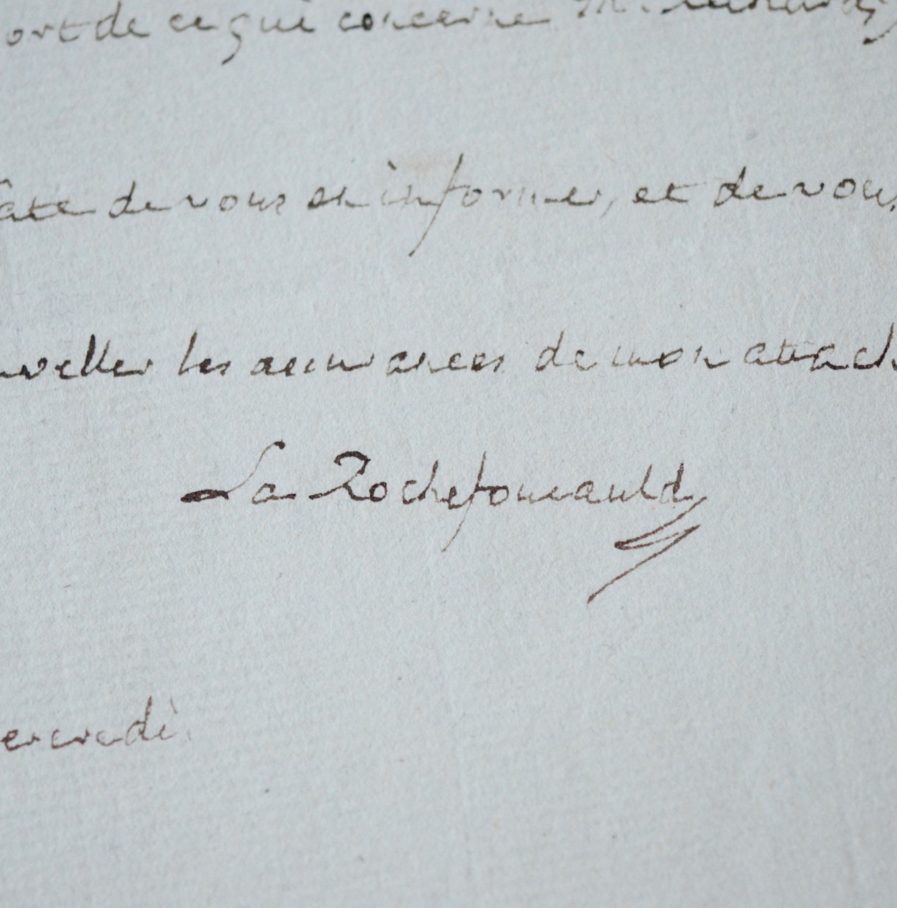 ort de ce qui concerne M.
ate de vous en informer, et de vous
uveller les assurances de mon attach
La Rochefoucauld
ercredi